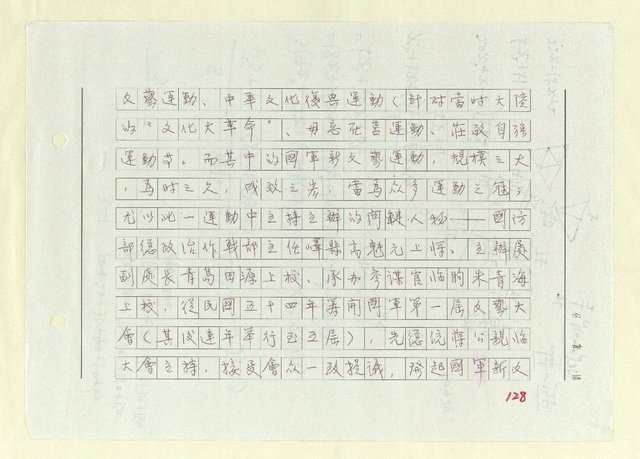 文藝運動、中華文化復興運動(針對當时大陸
收"文化大革命"、毋忘在莒運動、莊敬自強
運動等。而其中的國軍新文藝運動,規模之大
,為时之久,成效之宏,當為众多運動之冠;
尤以此一運動中主持主辦的関鍵人物——國防
部總政治作戰部主任嶧縣高魁元上將、主辦處
副處長青島田源上校、承办参谋官临朐朱青海
上校,從民國五十四年籌開國軍第一屆文藝大
會(其後連年举行至五屆),先總統蔣公親临
大會主持,接受會众一致提議,發起國軍新文
128